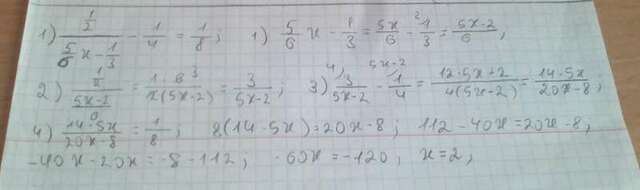 1) (1/2)/(5/6 x - 1/3) - 1/4 = 1/8; 1) 5/6 x - 1/3 = 5x/6 - ²1/3 = (5x-2)/6;
2) (1/2)/((5x-2)/6) = (1·6³)/(2(5x-2)) = 3/(5x-2); 3) ⁴⁾3/(5x-2) - ⁵ˣ⁻²1/4 = (12·5x+2)/(4(5x-2)) = (14·5x)/(20x-8);
4) (14·5x)/(20x-8) = 1/8; 8(14·5x)=20x-8; 112-40x=20x-8;
-40x-20x=-8-112; -60x=-120; x=2;